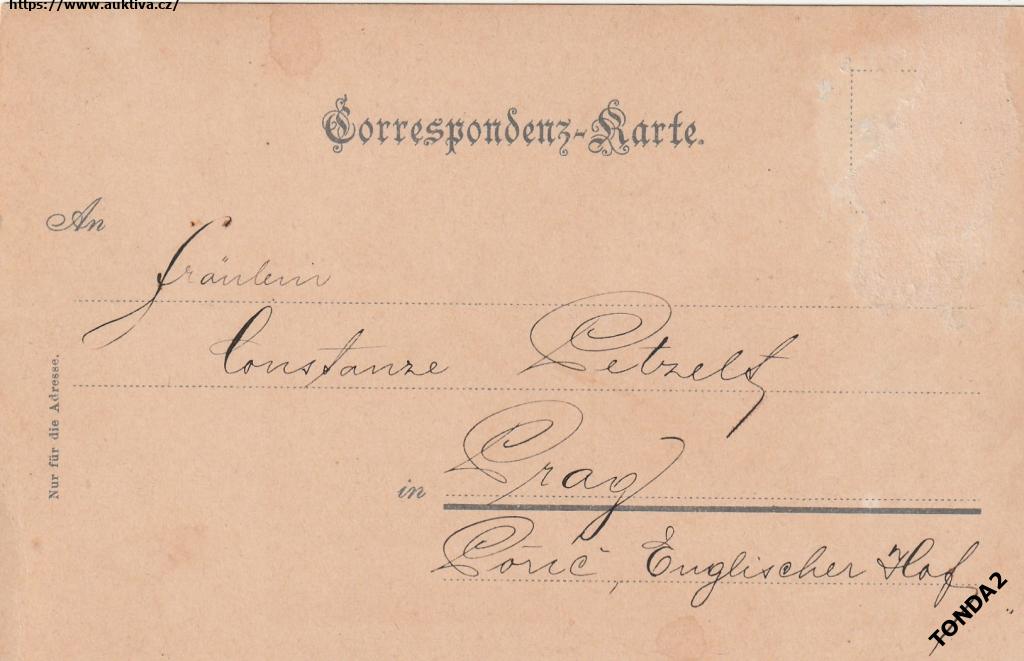 https://www.auktiva.cz/
Correspondenz-Karte.
An
Fräulein
Constanze Petzelt
in Prag
Pořič, Englischer Hof
Nur für die Adresse.
TONDA2